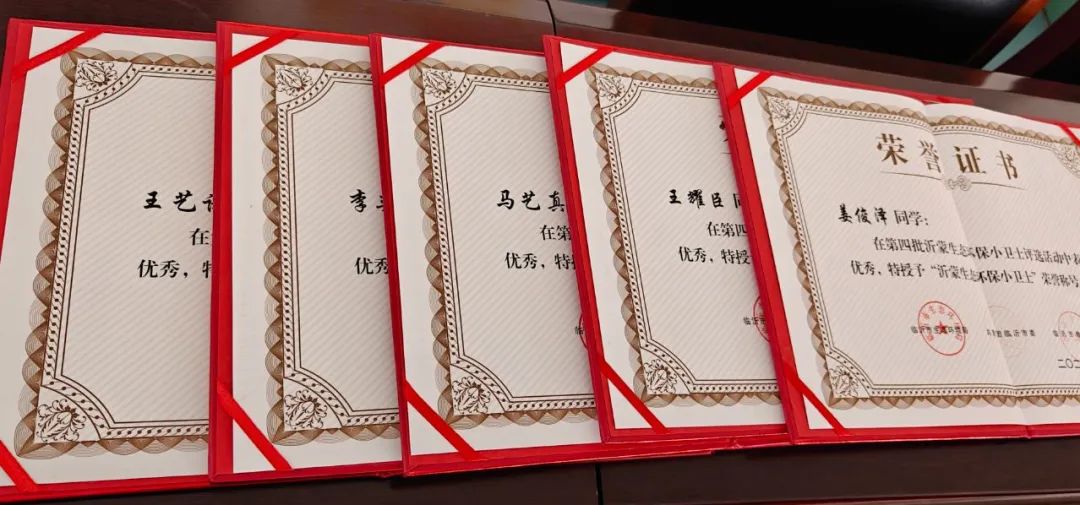 王艺
在
优秀，特
李
在
优秀
马艺真
在第
优秀，特授
王耀臣同
在第四
优秀，特授予
荣誉证书
姜俊泽 同学：
在第四批沂蒙生态环保小卫士评选活动中表
优秀，特授予“沂蒙生态环保小卫士”荣誉称号
临沂市生态环境局 临沂市委 临沂市
二〇二